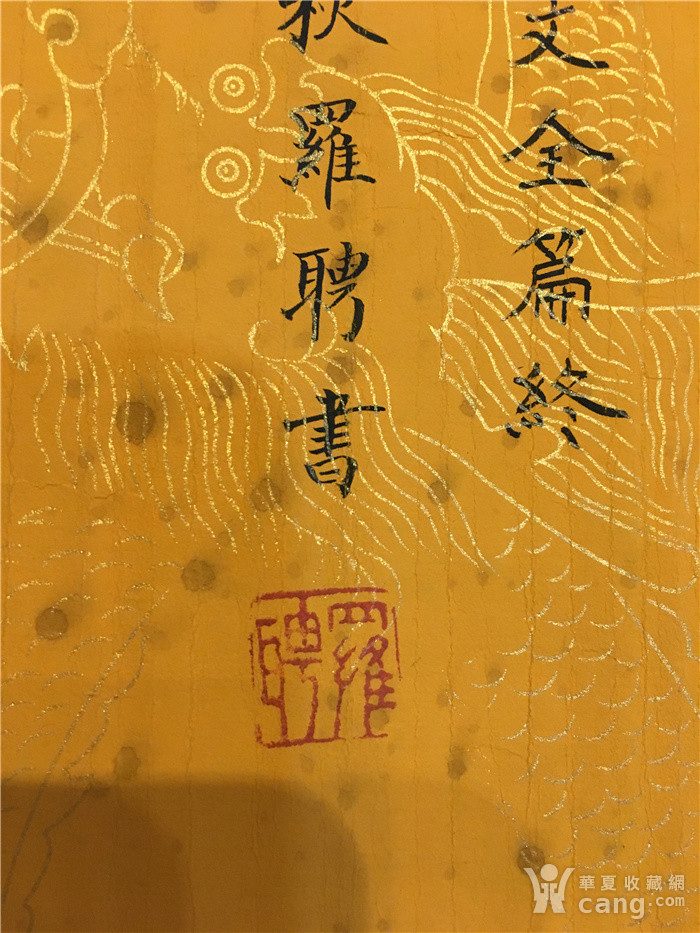 文全篇終
秋羅聘書
羅聘
華夏收藏網
cang.com